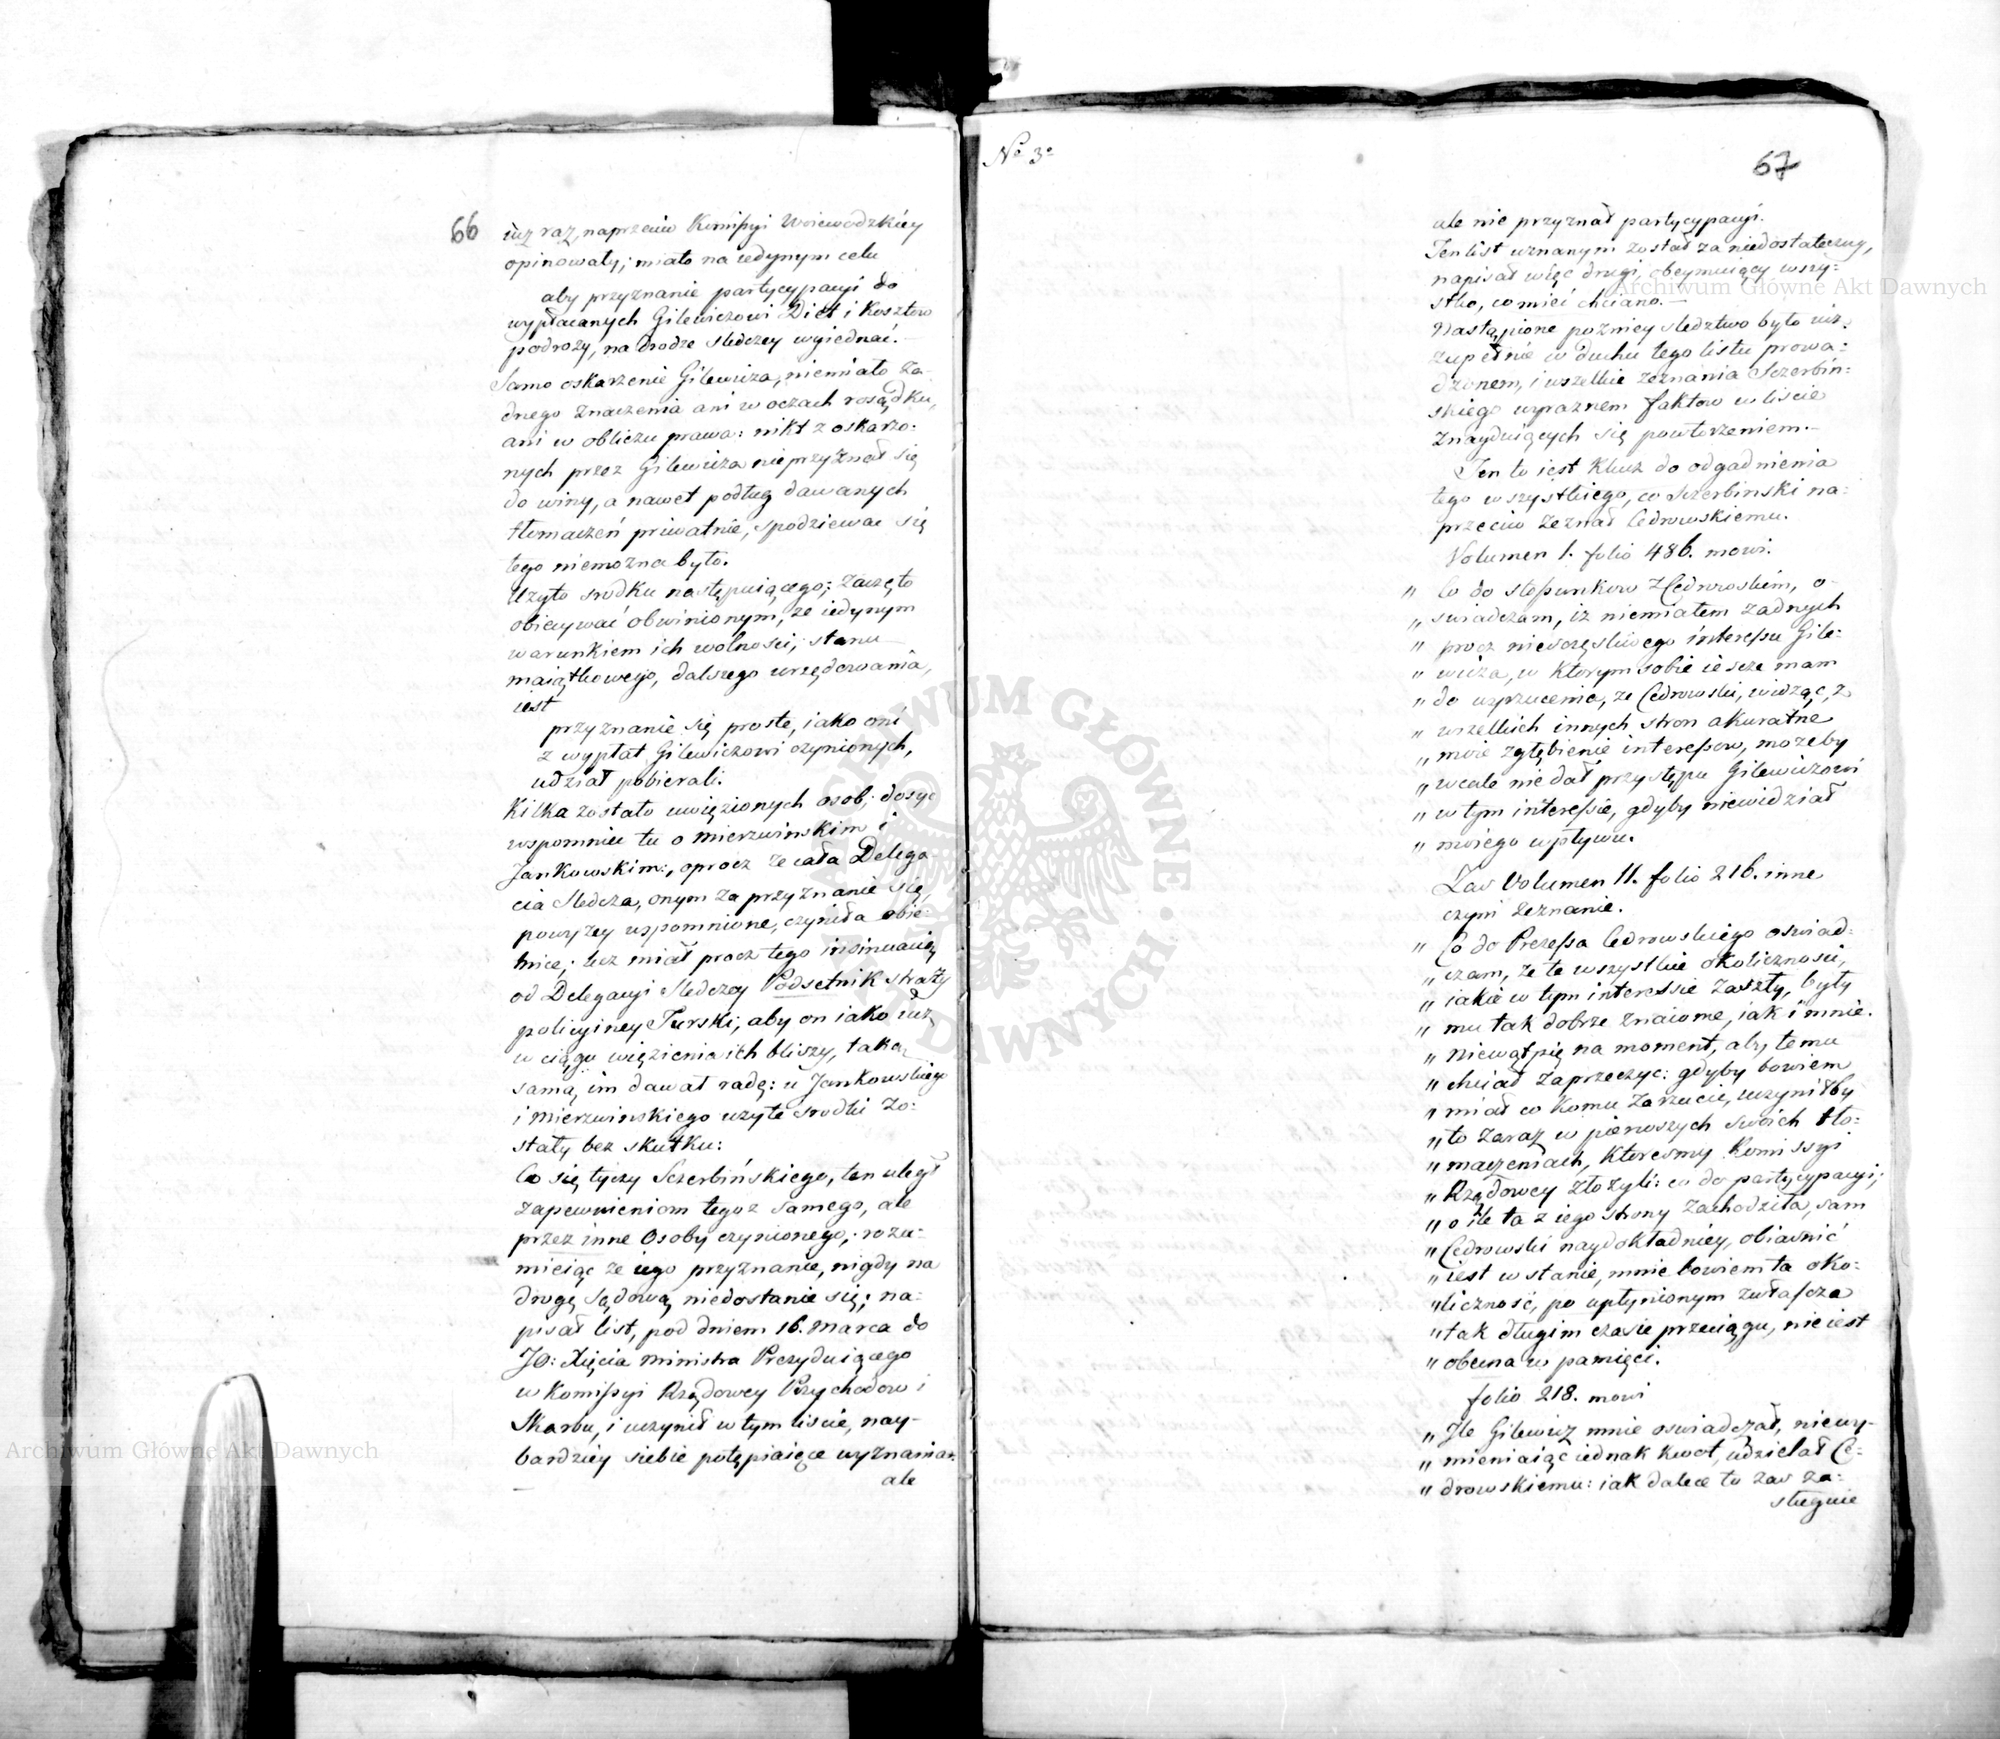 66
iuz raz, naprzeciw Komissyi Woiewodzkiey
opinowały; miało na iedynym celu
aby przyznanie partycypacyi do
wypłacanych Gilewiczowi Diet i Kosztow
podroży, na drodze sledczey wyiednać.
Samo oskarzenie Gilewicza, niemiało za-
dnego znaczenia ani w oczach rosądku,
ani w obliczu prawa: nikt z oskarzo-
nych przez Gilewicza nieprzyznał się
do winy, a nawet podług dawanych
tłomaczeń priwatnie, spodziewac się
tego niemozna było.
Uzyto srodku następuiącego; zaczęto
obiecywać obwinionym, ze iedynym
warunkiem ich wolnosci, stanu
maiątkowego, dalszego urzędowania,
iest
przyznanie się proste, iako oni
z wypłat Gilewiczowi czynionych,
udział pobierali.
Kilka zostało uwięzionych osob; dosyc
wspomnieć tu o Mierzwinskim i
Jankowskim:, oprocz ze cała Delega-
cia sledcza, onym za przyznanie się,
powyzey wspomnione, czyniła obie-
tnice; lecz miał procz tego insinuacią
od Delegacyi sledczey Podsetnik straży
policyiney Turski; aby on iako iuz
w ciągu więzienia ich bliszy, taką
samą im dawał radę: u Jankowskiego
i Mierzwinskiego uzyte srodki zo-
stały bez skutku:
Co się tyczy Sczerbińskiego, ten uległ
zapewnieniom tegoz samego, ale
przez inne Osoby czynionego; rozu-
mieiąc ze iego przyznanie, nigdy na
drogę sądową niedostanie się; na-
pisał list, pod dniem 16. Marca do
JO: Xięcia Ministra Prezyduiącego
w Komissyi Rządowey Przychodow i
Skarbu, i uczynił w tym liscie, nay-
bardziey siebie potępiaiące wyznania.
ale
No 3o
67
ale nie przyznał partycypacyi.
Ten list uznanym został za niedostateczny,
napisał więc drugi, obeymuiący wszy-
stko, co mieć chciano.
Nastąpione pozniey sledztwo było iuz
zupełnie w duchu tego listu prowa-
dzonem, i wszelkie zeznania Sczerbin-
skiego wyraznem faktow w liscie
znayduiących się powtorzeniem.
Ten to iest Klucz do odgadnienia
tego wszystkiego, co Sczerbinski na-
przeciw zeznał Cedrowskiemu.
Volumen 1. folio 486. mowi.
" Co do stosunkow z Cedrowskim, o-
" swiadczam, iz niemiałem zadnych
" procz nieszczęsliwego interessu Gile-
" wicza, w ktorym sobie ieszcze mam
" do wyrzucenia, ze Cedrowski, widząc, z
" wszelkich innych stron akuratne
" moie zgłębienie interessow, mozeby
" wcale nie dał przystępu Gilewiczowi
" w tym interessie, gdyby niewidział
" moiego wpływu.
Zas Volumen 11. folio 216. inne
czyni zeznanie.
" Co do Prezessa Cedrowskiego oswiad-
" czam, ze te wszystkie okolicznosci,
" iakie w tym interessie zaszły, były
" mu tak dobrze znaiome, iak i mnie.
" Niewątpię na moment, aby temu
" chciał zaprzeczyc: gdyby bowiem
" miał co komu zarzucic, uczyniłby
" to zaraz w pierwszych swoich tło-
" maczeniach, ktoresmy Komissyi
" Rządowey złozyli: co do partycypacyi;
" o ile ta z iego strony zachodziła, sam
" Cedrowski naydokładniey, obiasnić
" iest w stanie, mnie bowiem ta oko-
" liczność, po upłynionym zwłascza
" tak długim czasie przeciągu, nie iest
" obecna w pamięci.
folio 218. mowi
" Ile Gilewicz mnie oswiadczał, niewy-
" mieniaiąc iednak kwot, udzielał Ce-
" drowskiemu: iak dalece to zas za-
sługuie
Archiwum Główne Akt Dawnych
Archiwum Główne Akt Dawnych
ARCHIWUM GŁÓWNE AKT DAWNYCH